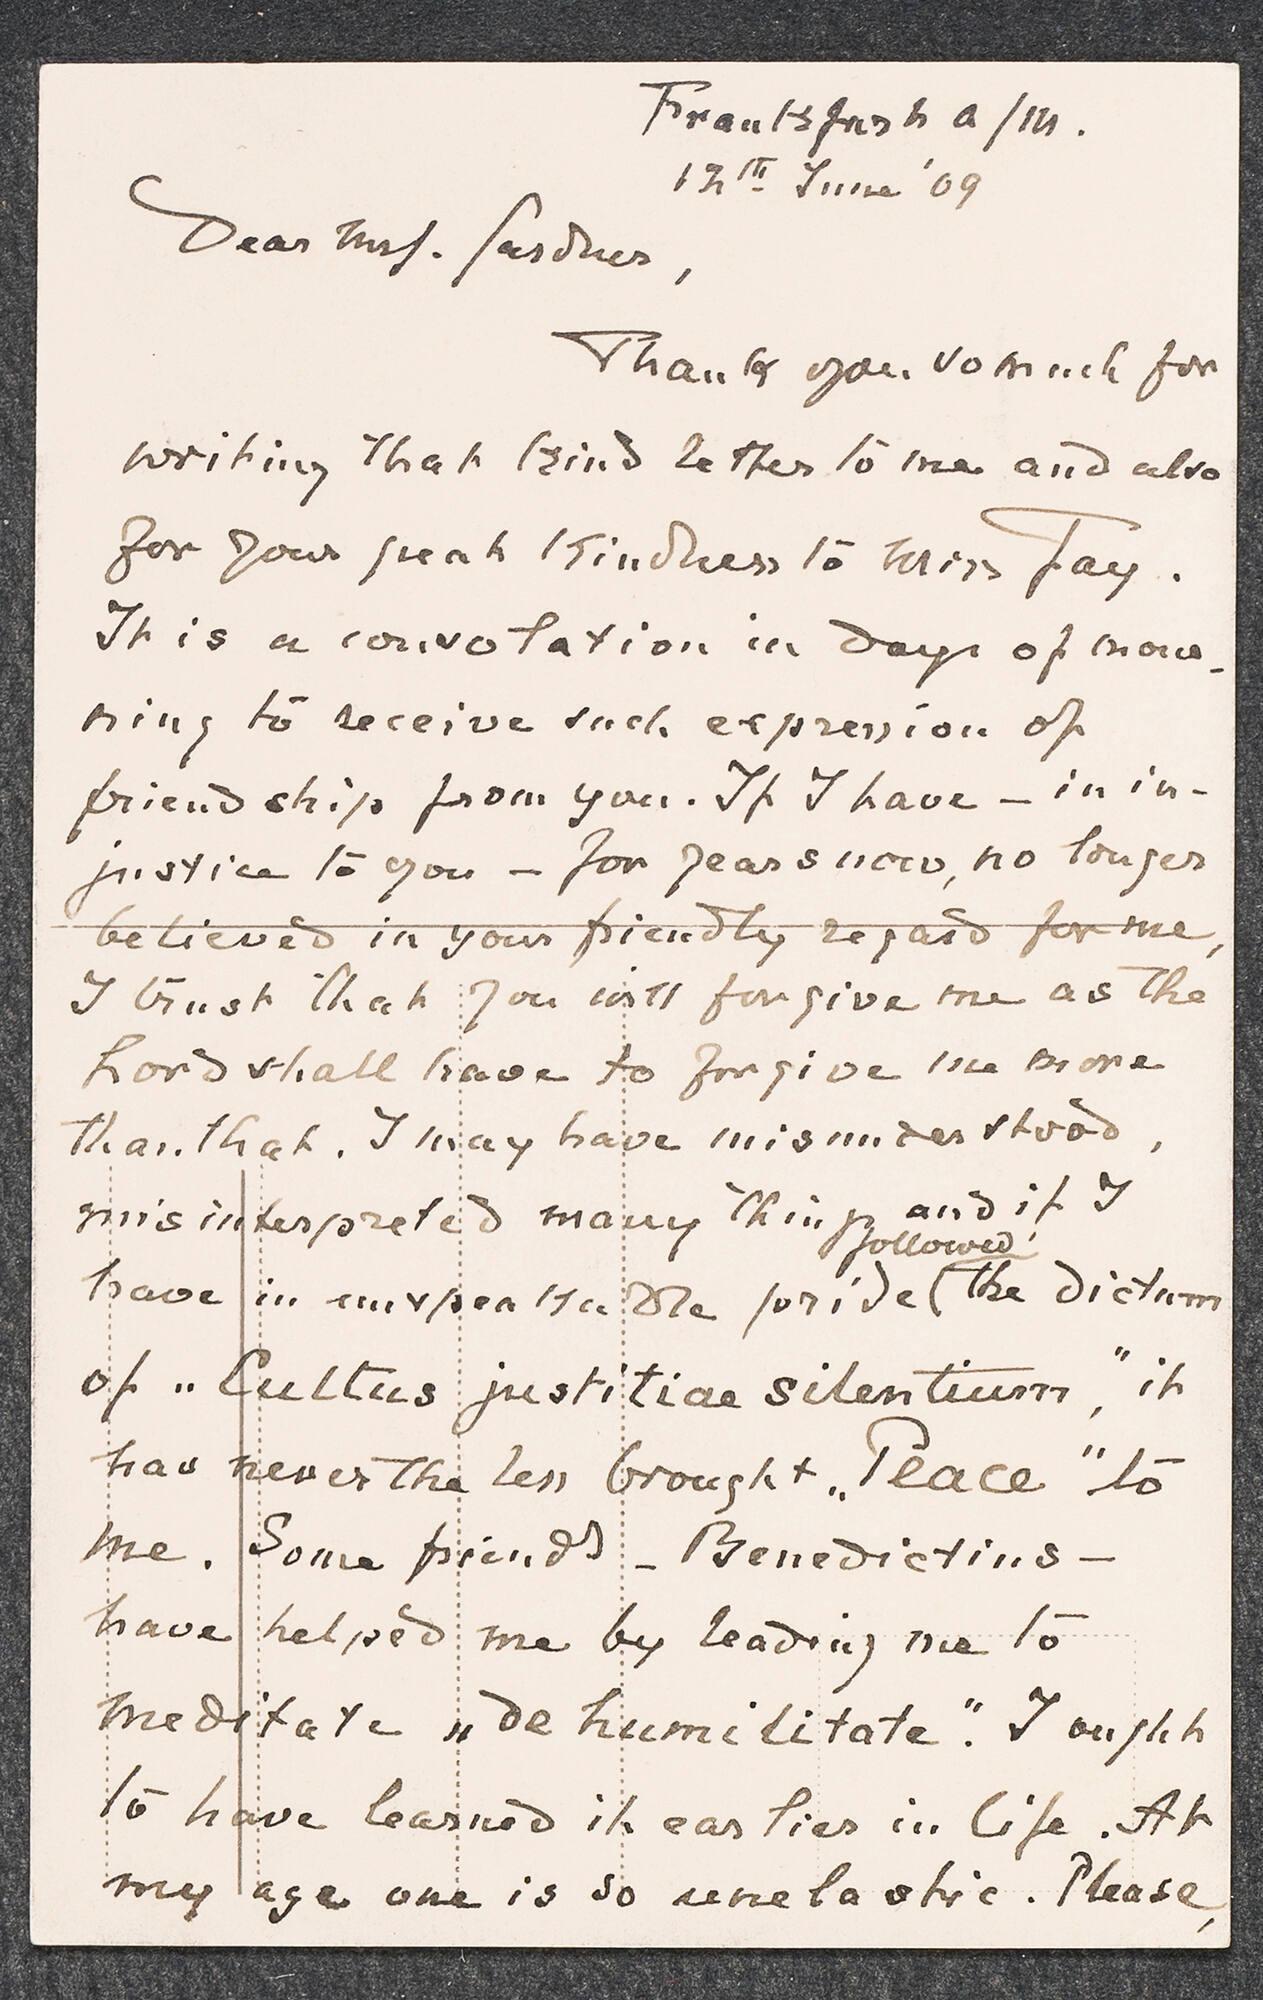 Frankfurt a/M.
12th June '09
Dear Mrs. Gardner,
Thank you so much for
writing that kind letter to me and also
for your great kindness to Miss Fay.
It is a consolation in days of mour-
ning to receive such expression of
friendship from you. If I have – in in-
justice to you – for years now, no longer
believed in your friendly regard for me,
I trust that you will forgive me as the
Lord shall have to forgive me more
than that. I may have misunderstood,
misinterpreted many things and if I
followed
have in unspeakable pride (the dictum
of „Cultus justitiae silentium," it
has nevertheless brought „Peace" to
me. Some friends – Benedictins –
have helped me by leading me to
meditate „de humilitate". I ought
to have learned it earlier in life. At
my age one is so unelastic. Please,